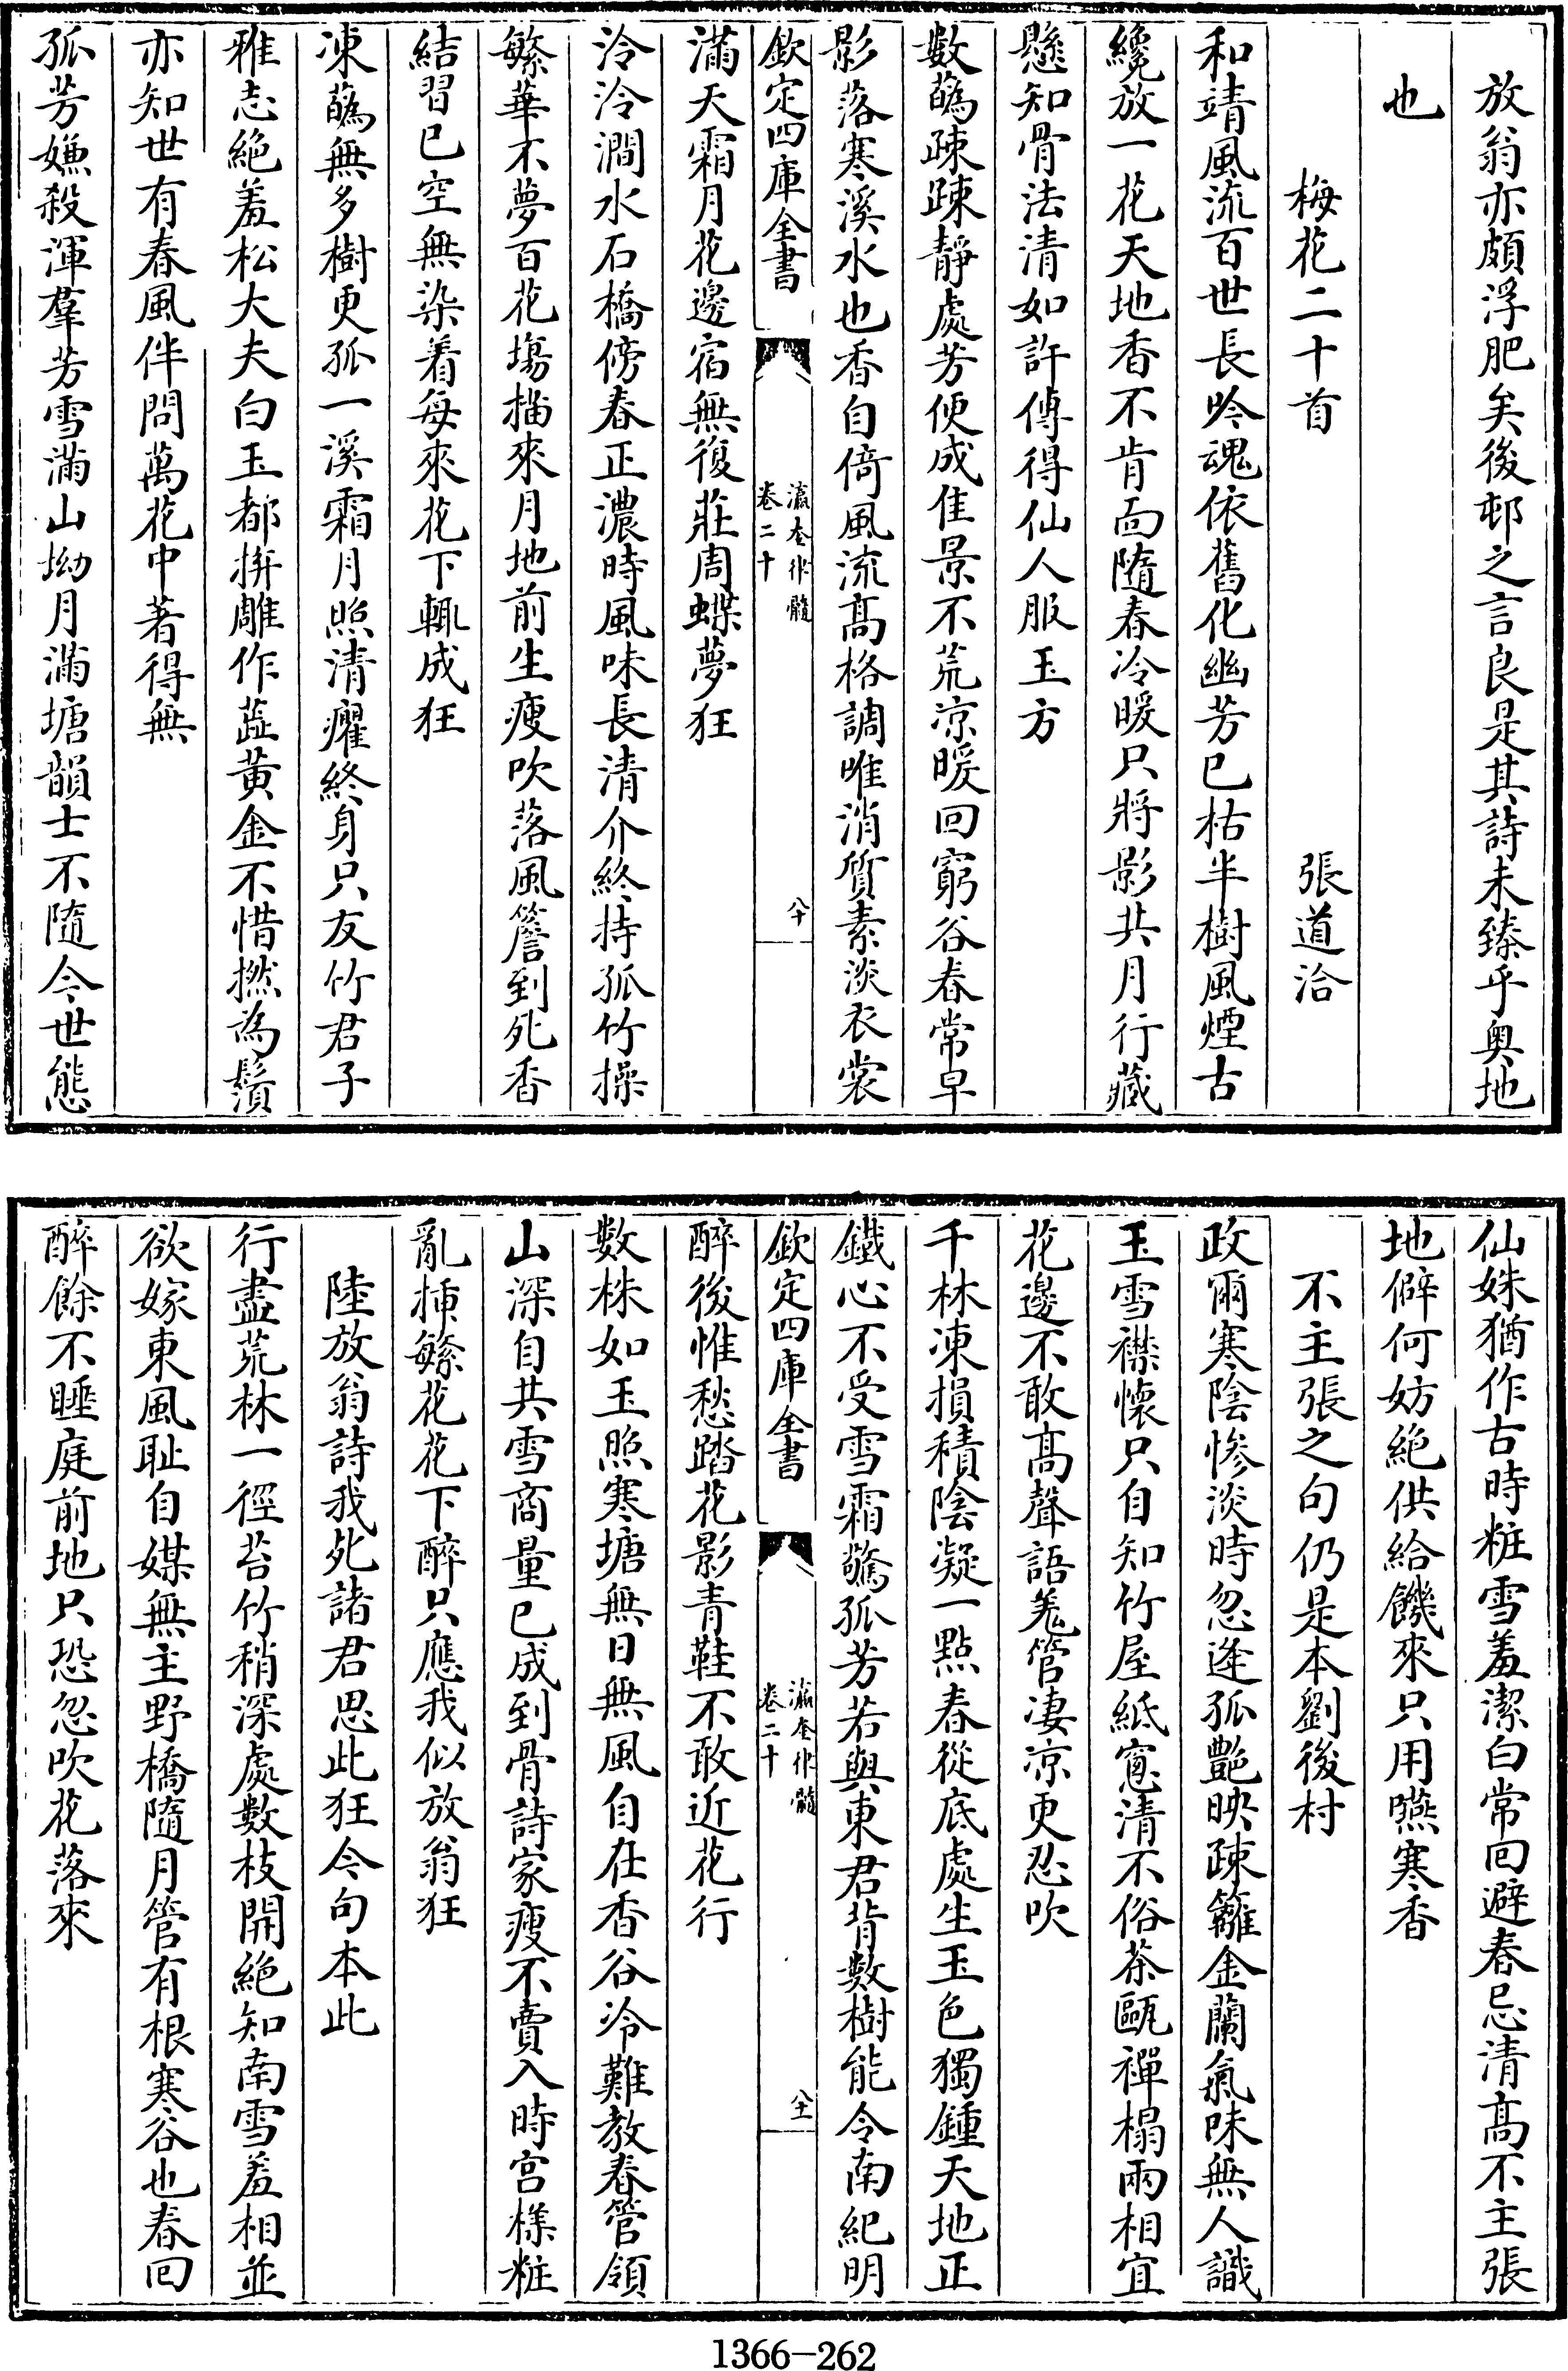 放翁亦頗浮肥矣後邨之言良是其詩未臻乎奥地
也
梅花二十首　張道洽
和靖風流百世長吟魂依舊化幽芳已枯半樹風煙古
纔放一花天地香不肯面隨春冷暖只將影共月行藏
懸知骨法清如許傳得仙人服玉方
數蘤疎疎靜處芳便成佳景不荒凉暖回窮谷春常早
影落寒溪水也香自倚風流髙格調唯消質素淡衣裳
欽定四庫全書　瀛奎律髓　卷二十　八十
滿天霜月花邊宿無復莊周蝶夢狂
泠泠澗水石橋傍春正濃時風味長清介終持孤竹操
繁華不夢百花塲描來月地前生瘦吹落風簷到死香
結習已空無染着每來花下輒成狂
凍蘤無多樹更孤一溪霜月照清癯終身只友竹君子
雅志絶羞松大夫白玉都拚雕作蘂黄金不惜撚為鬚
亦知世有春風伴問萬花中著得無
孤芳嫌殺渾羣芳雪滿山坳月滿塘韻士不隨今世態
仙姝猶作古時粧雪羞潔白常回避春忌清髙不主張
地僻何妨絶供給饑來只用嚥寒香
不主張之句仍是本劉後村
政爾寒陰慘淡時忽逢孤艶映疎籬金蘭氣味無人識
玉雪襟懷只自知竹屋紙窻清不俗茶甌禪榻兩相宜
花邊不敢髙聲語羌管凄凉更忍吹
千林凍損積陰凝一點春從底處生玉色獨鍾天地正
鐵心不受雪霜驚孤芳若與東君背數樹能令南紀明
欽定四庫全書　瀛奎律髓　卷二十　八十一
醉後惟愁踏花影青鞋不敢近花行
數株如玉照寒塘無日無風自在香谷冷難教春管領
山深自共雪商量已成到骨詩家瘦不賣入時宫様粧
亂插繁花花下醉只應我似放翁狂
陸放翁詩我死諸君思此狂今句本此
行盡荒林一徑苔竹稍深處數枝開絶知南雪羞相並
欲嫁東風耻自媒無主野橋隨月管有根寒谷也春回
醉餘不睡庭前地只恐忽吹花落來
1366—262